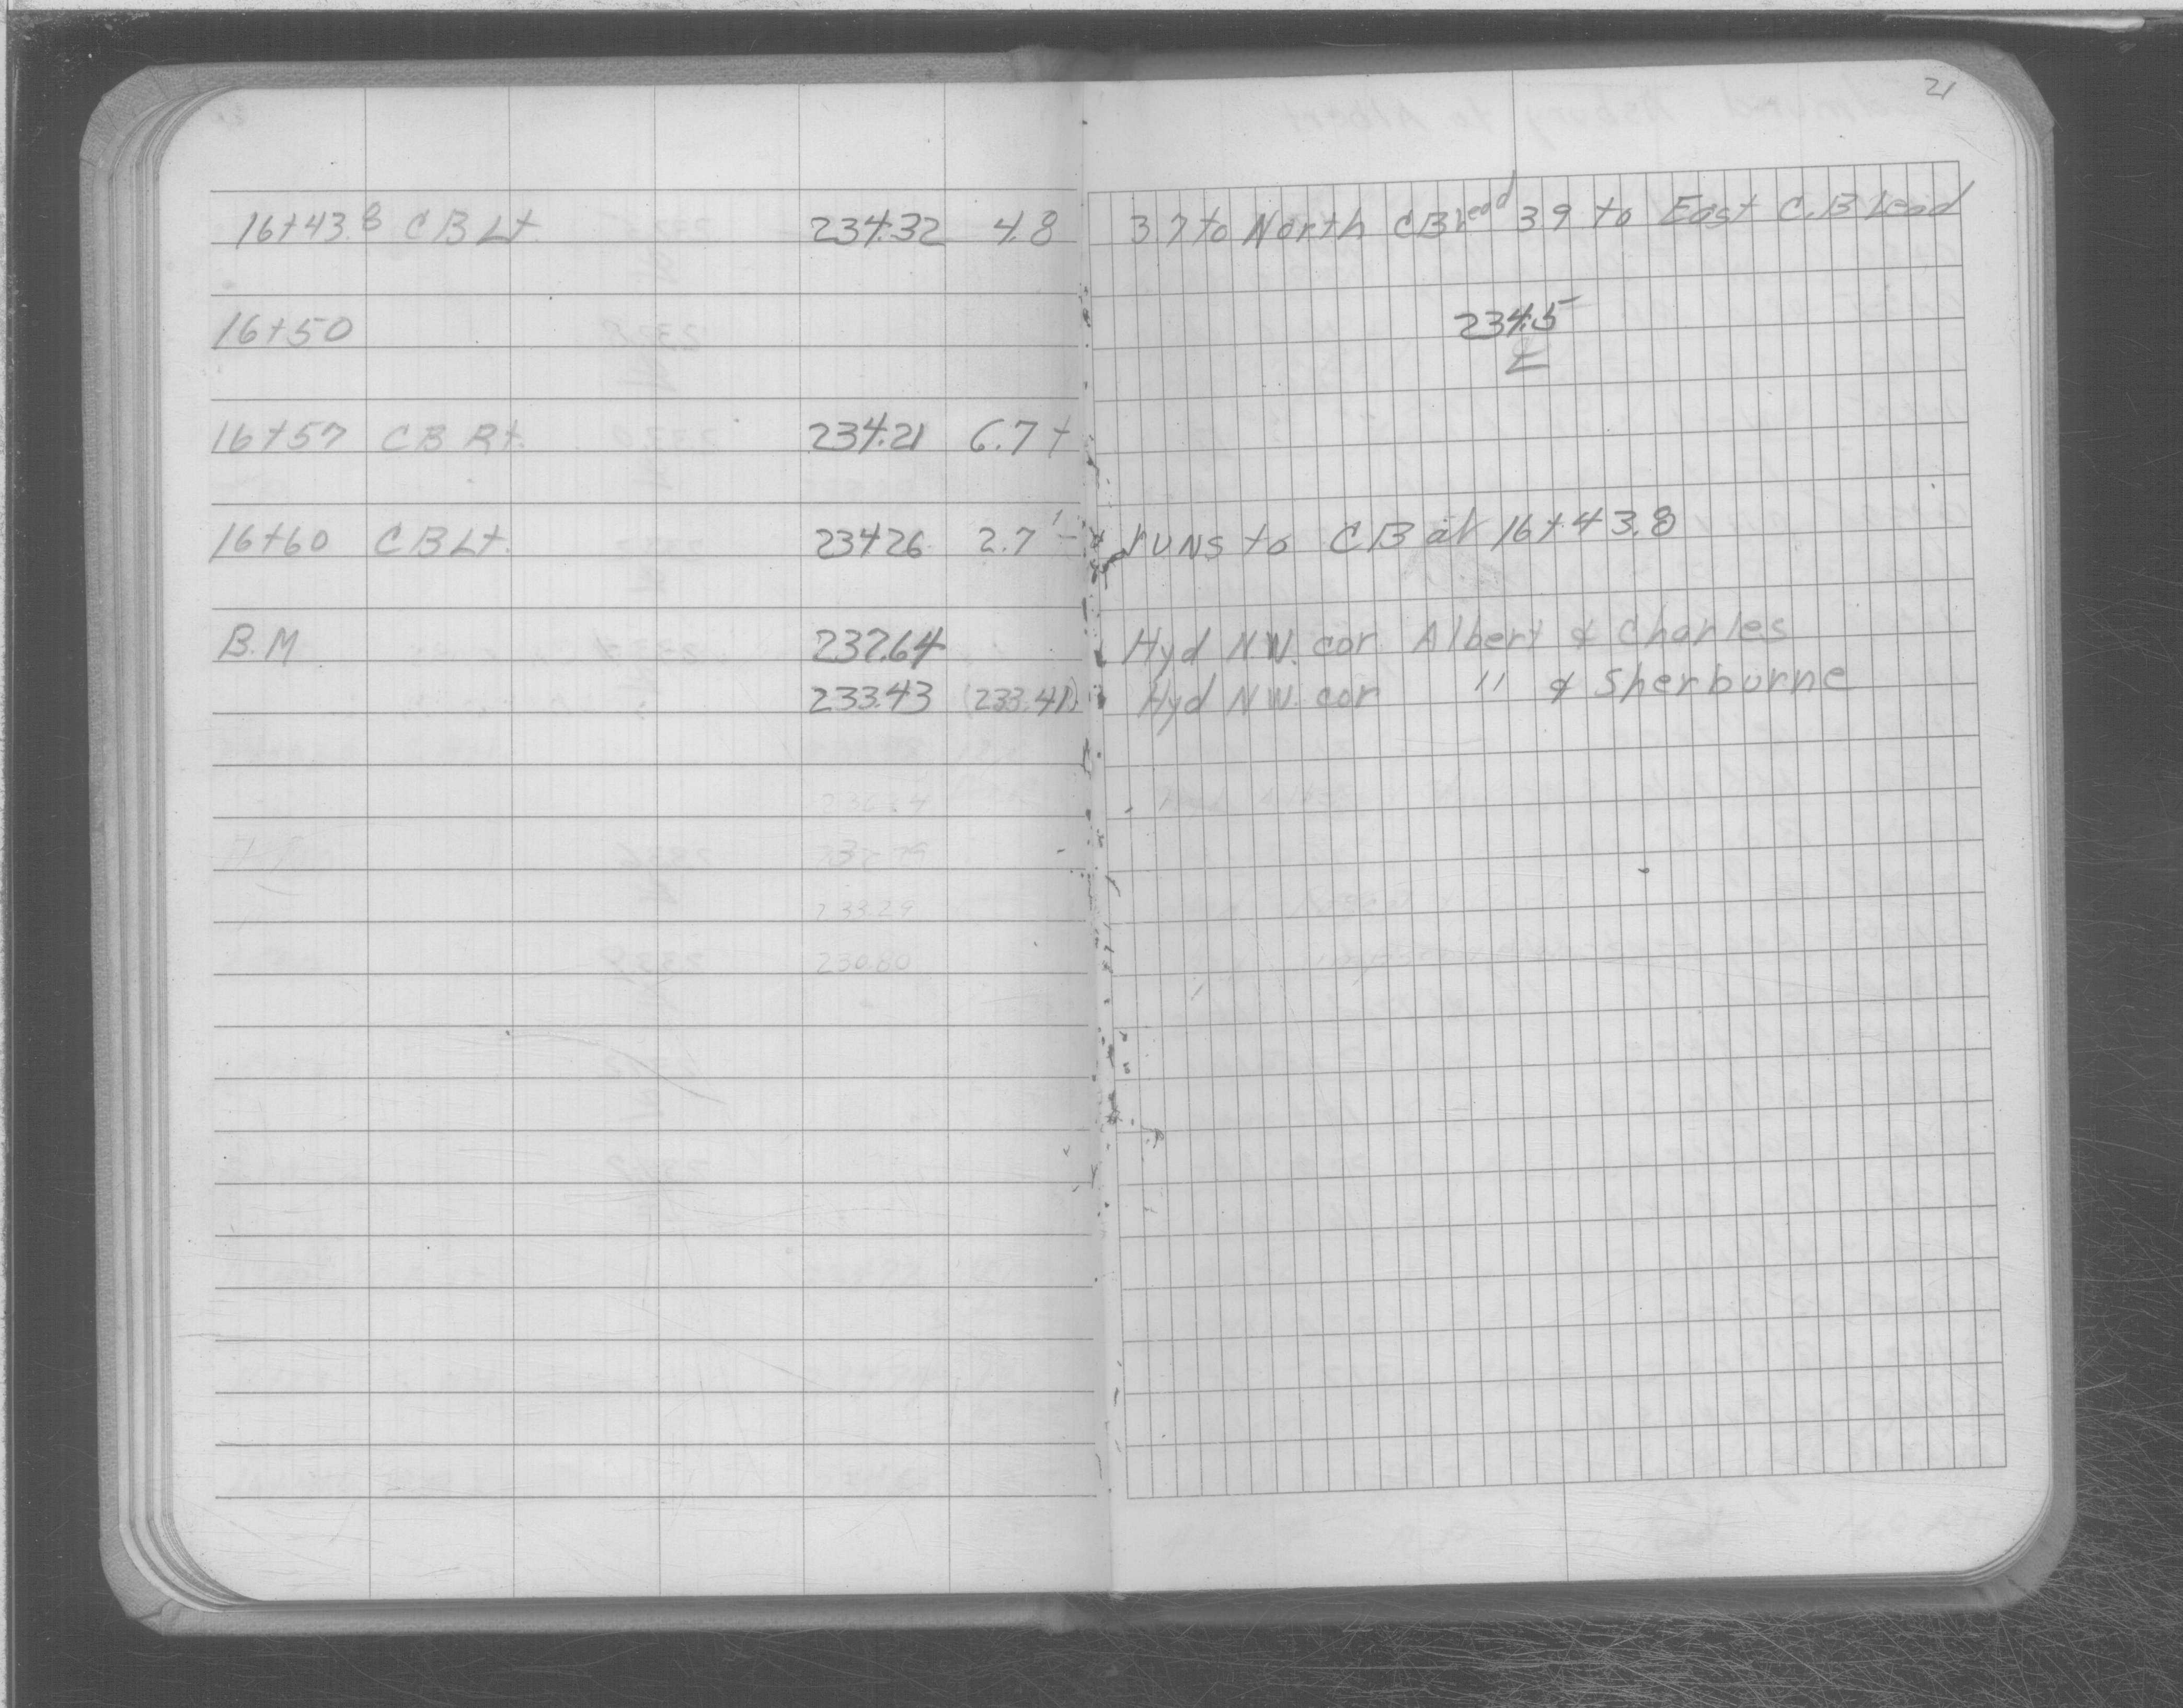 21
16+43.8 CB Lt. 234.32 4.8 3.7 to North CB Lead 3.9 to East C.B Lead
16+50 234.5
16+57 CB Rt. 234.21 6.7+
16+60 CB Lt. 234.26 2.7' runs to CB at 16+43.8
B.M 232.64 Hyd N.W. cor. Albert & Charles
233.43 (233.41) Hyd N.W. cor " & Sherburne
232.29
233.29
230.80